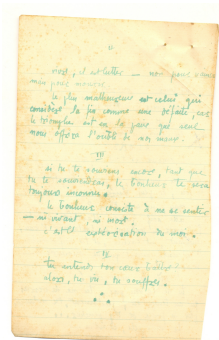 II
vivre, c'est lutter — non pour
mais pour mourir.
Le plus malheureux est celui qui
considère la fin comme une défaite, car
le triomphe est en la paix qui seule
nous offre l'oubli de nos maux.
III
si tu te souviens encore, tant que
tu te souviendras, le bonheur te sera
toujours inconnu.
le bonheur consiste à ne se sentir
— ni vivant, ni mort.
c'est l' du moi.
IV
tu entends ton cœur battre
alors, tu vis, tu souffres.